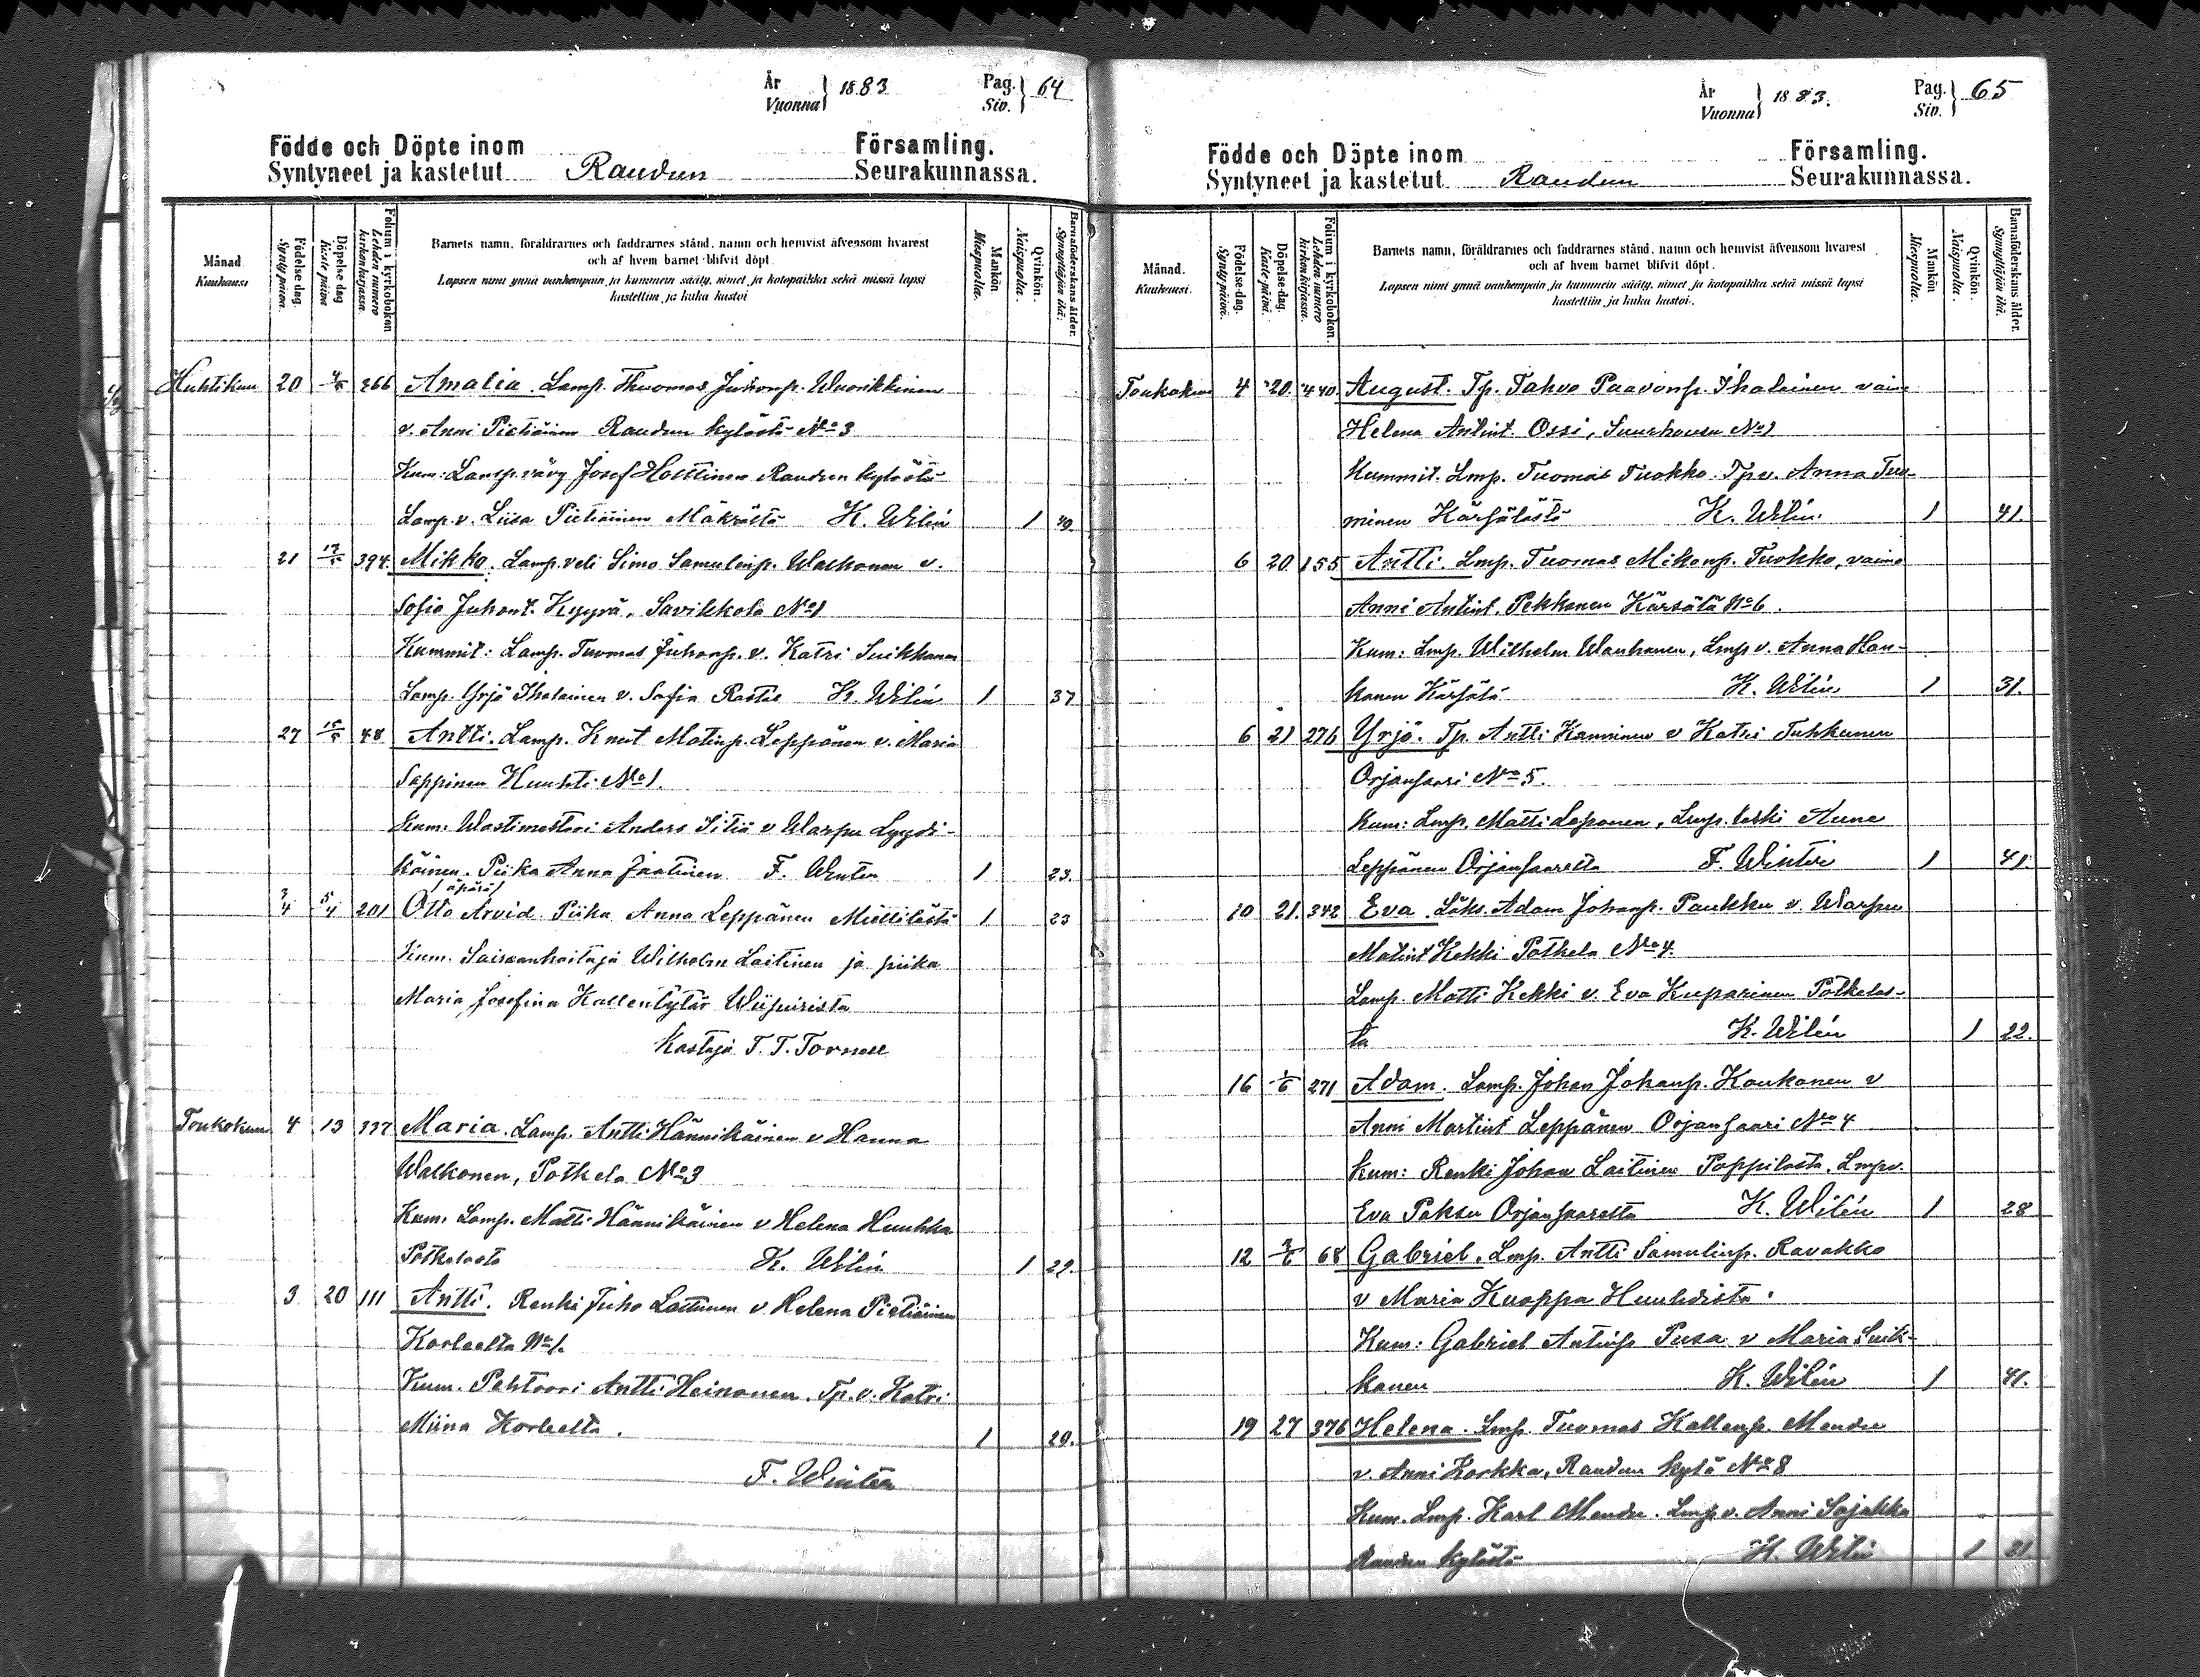 År Vuonna } 1883 Pag. Siv. } 64
Födde och Döpte inom Församling.
Syntyneet ja kastetut Raudun Seurakunnassa.
Månad. Kuukausi
Födelse-dag. Syntypäivä.
Döpelse-dag. Kaste päivä
Folium i kyrkobokon Lehden numero kirkonkirjassa.
Barnets namn, föräldrarnes och faddrarnes stånd, namn och hemvist äfvensom hvarest
och af hvem barnet blifvit döpt.
Lapsen nimi ynnä vanhempain ja kummein sääty, nimet ja kotopaikka sekä missä lapsi
kastettiin ja kuka kastoi
Mankön. Miespuolia.
Qvinkön. Naispuolia.
Barnaföderskans ålder. Synnyttäjän ikä.
Huhtikuu 20 4/5 266 Amalia. Lamp. Thuomas Juhonp. Wuorikkinen
v. Anni Pietiäinen Raudun kylästä No 3
Kum: Lamp. vävy Josef Holttinen Raudun kylästä
Lamp. v. Liisa Pietiäinen Mäkrästä K. Wilén 1 40.
21 13/5 394. Mikko. Lamp. veli Simo Samulinp. Walkonen v.
Sofia Juhont. Kyyrä, Savikkola No 1
Kummit: Lamp. Tuomas Juhonp. v. Katri Suikkanen
Lamp. Yrjö Ihalainen v. Sofia Rastas K. Wilén 1 37
27 15/5 48 Antti. Lamp. Knut Matinp. Leppänen v. Maria
Seppinen Huuhti No 1.
Kum: Wastimestari Anders Sitiä v Warpu Lyydi-
käinen. Piika Anna Jaatinen F. Winter 1 23.
3/4 5/4 201 Otto Arvid (äpärä) Piika Anna Leppänen Miettilästä 1 23
Kum. Sairaanhoitaja Wilhelm Laitinen ja piika
Maria Josefina Kallentytär Wiipurista
Kastaja T. T. Tornell
Toukokuu 4 13 137 Maria. Lamp. Antti Hännikäinen v Hanna
Walkonen, Potkela No 3
Kum: Lamp. Matti Hännikäinen v Helena Huuhka
Potkelasta K. Wilén 1 29.
3 20 111 Antti. Renki Juho Lattunen v. Helena Pietiäinen
Korleelta No 1.
Kum. Pehtoori Antti Heinonen. Tp. v. Katri
Miina Korleelta. 1 29.
F. Winter
År Vuonna } 1883. Pag. Siv. } 65
Födde och Döpte inom Församling.
Syntyneet ja kastetut Raudun Seurakunnassa.
Månad. Kuukausi.
Födelse-dag. Syntypäivä.
Döpelse-dag. Kaste päivä.
Folium i kyrkobokon. Lehden numero kirkonkirjassa.
Barnets namn, föräldrarnes och faddrarnes stånd, namn och hemvist äfvensom hvarest
och af hvem barnet blifvit döpt.
Lapsen nimi ynnä vanhempain ja kummein sääty, nimet ja kotopaikka sekä missä lapsi
kastettiin ja kuka kastoi.
Mankön. Miespuolia.
Qvinkön. Naispuolia.
Barnaföderskans ålder. Synnyttäjän ikä.
Toukokuu 4 20. 440. August. Tp. Tahvo Paavonp. Ihalainen vaimo
Helena Antint. Ossi, Suurhousu No 1
Kummit. Lmp. Tuomas Tuokko. Tp v. Anna Tuo-
minen Kärsälästä K. Wilén. 1 41.
6 20 155 Antti. Lmp. Tuomas Mikonp. Tuokko, vaimo
Anni Antint. Pekkonen Kärsälä No 6.
Kum: Lmp. Wilhelm Wanhanen, Lmp v. Anna Han-
kanen Kärsälä K. Wilén 1 31.
6 21 276 Yrjö. Tp. Antti Kanninen v Katri Tuhkunen
Orjansaari No 5.
Kum: Lmp. Matti Leponen, Lmp. leski Anne
Leppänen Orjansaarelta F. Winter 1 41.
10 21. 342 Eva. Läks. Adam Johanp. Paukku v. Warpu
Matint Kekki Potkela No 4.
Lamp. Matti Kekki v. Eva Kuparinen Potkelas-
ta K. Wilén 1 22.
16 1/6 271 Adam. Lamp. Johan Johanp. Koukonen v
Anni Martint Leppänen Orjansaari No 4
Kum: Renki Johan Laitinen Pappilasta, Lmp v.
Eva Paksu Orjansaarelta K. Wilén 1 28
12 3/6 68 Gabriel. Lmp. Antti Samulinp. Ravakko
v Maria Kuoppa Huuhdista.
Kum: Gabriel Antinp Pusa v Maria Suik-
kanen K. Wilén 1 41.
19 27 376 Helena. Lmp. Tuomas Kallenp. Mendu
v. Anni Korkka, Raudun kylä No 8
Kum. Lmp. Karl Mendu. Lmp. v. Anni Sojakka
Raudun kylästä K. Wilén 1 21